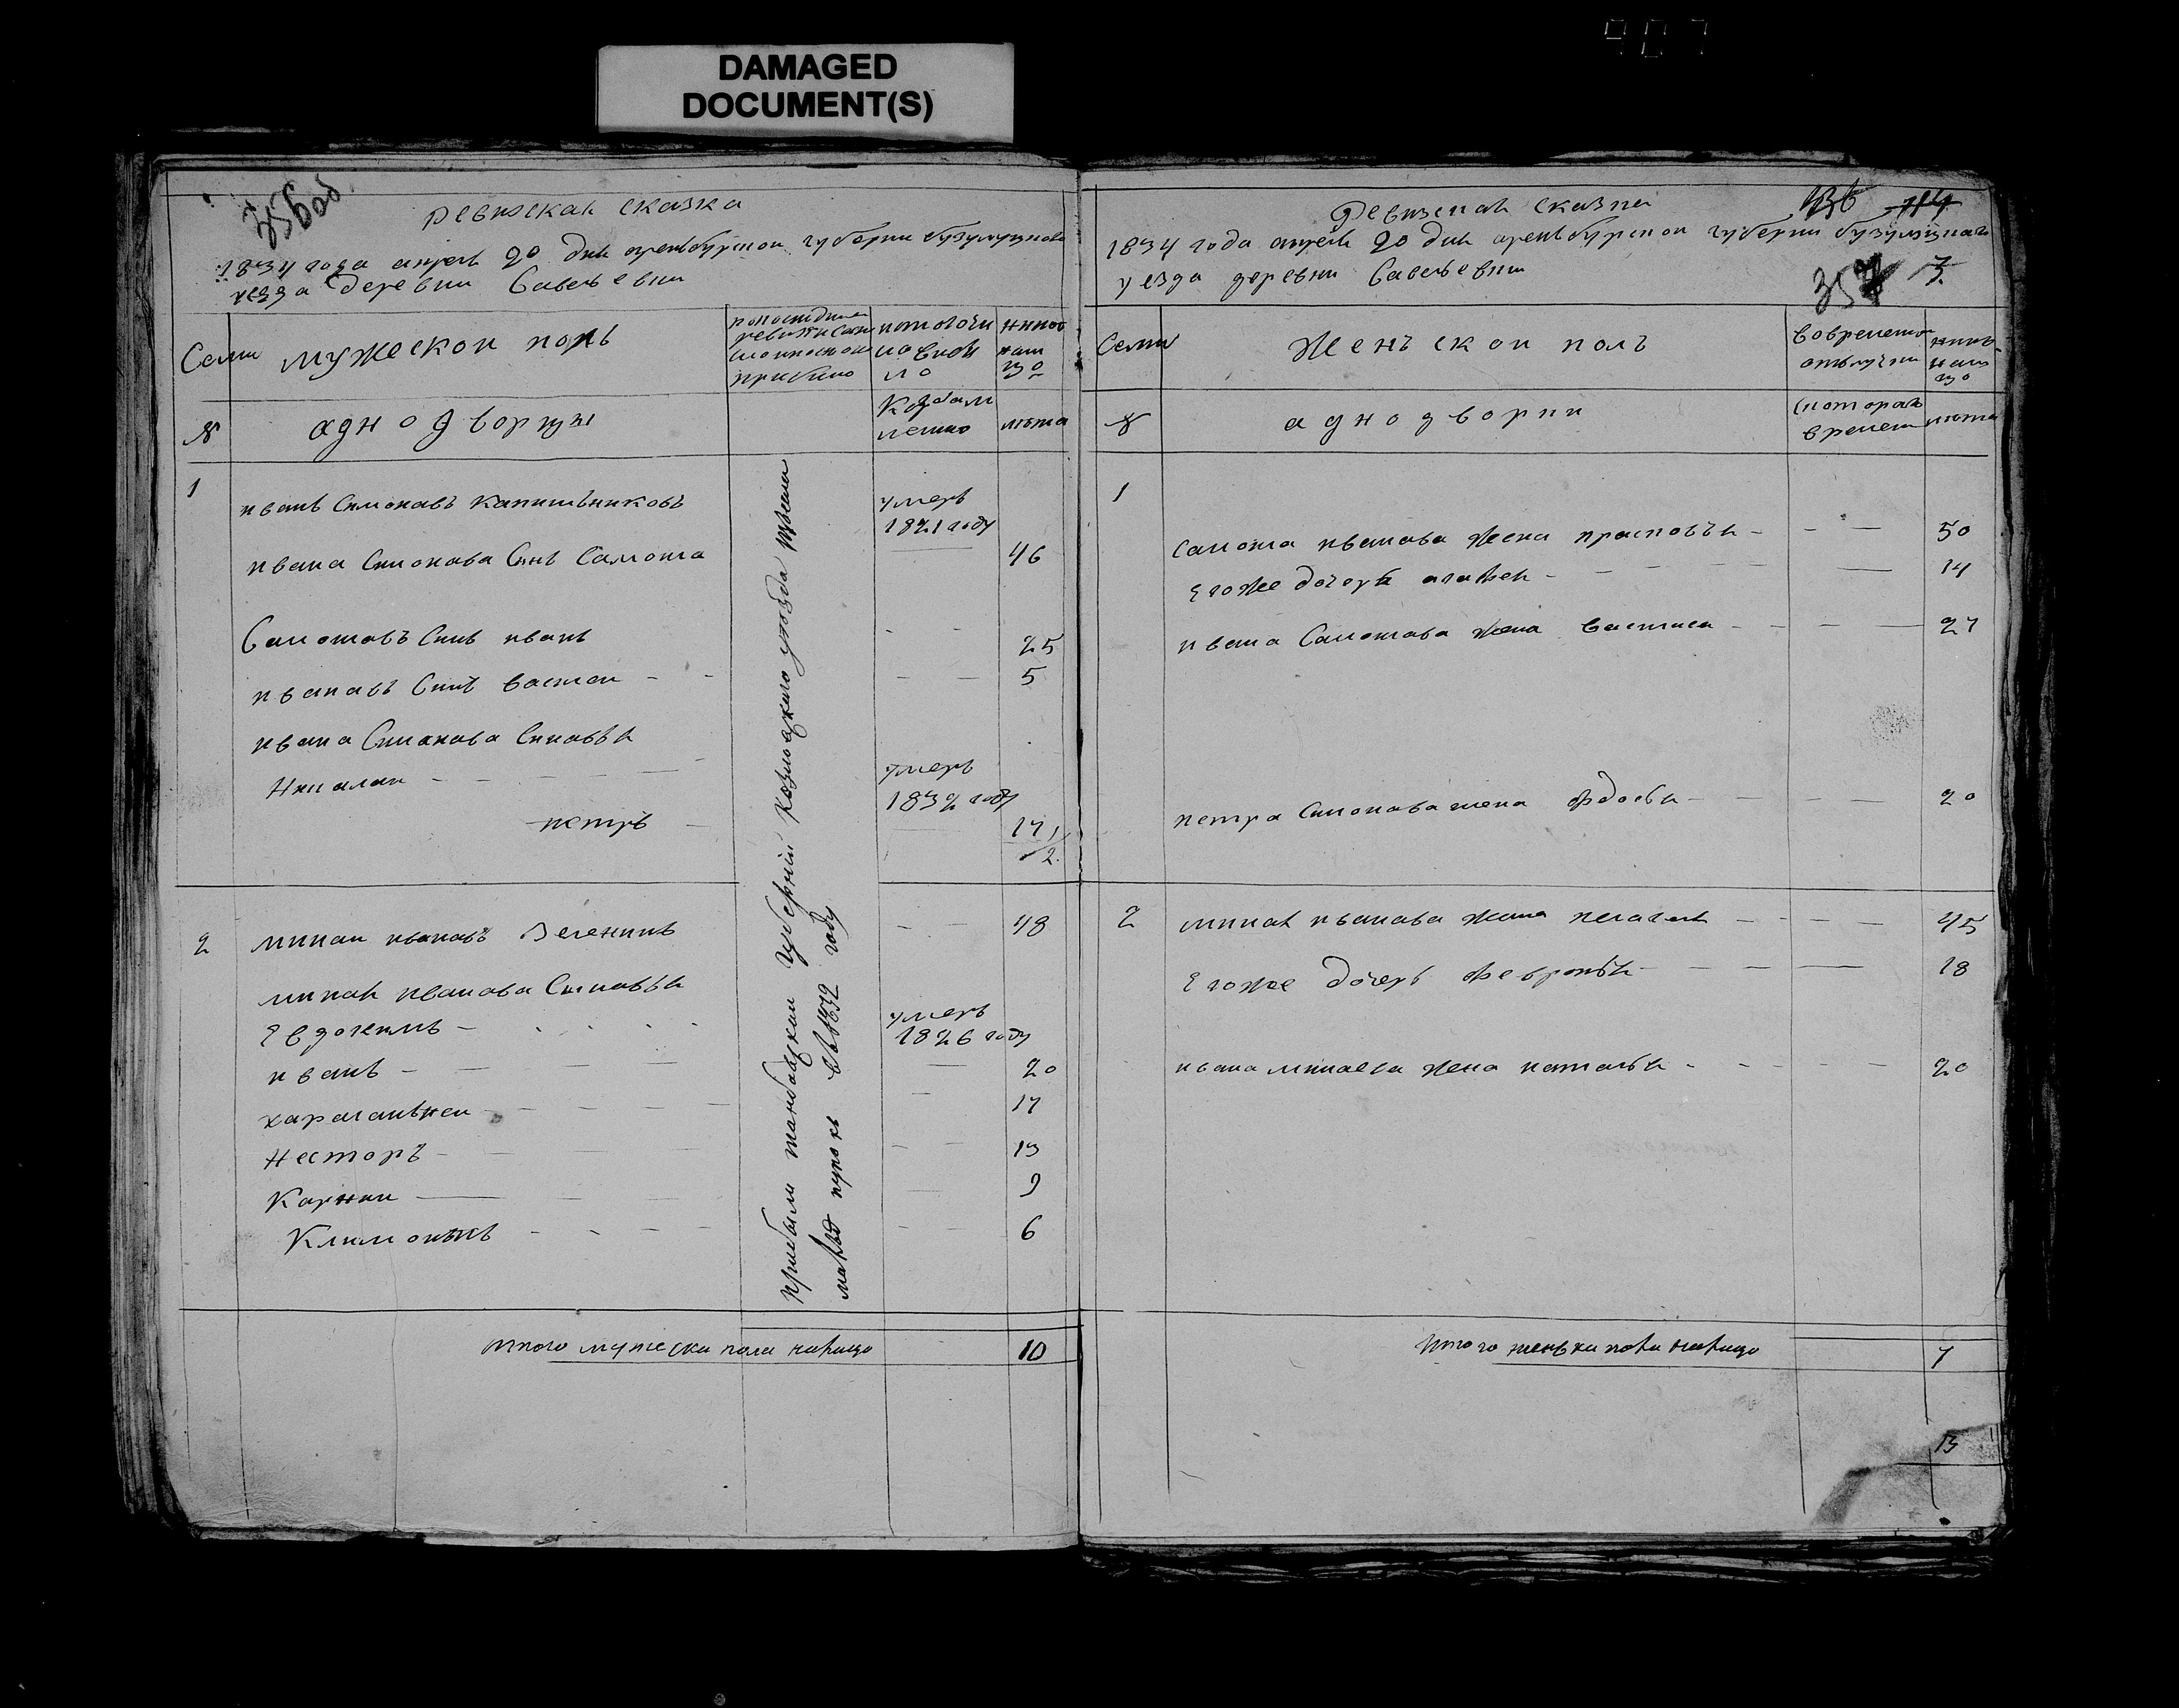 907
DAMAGED
DOCUMENT(S)
356об
ревизская сказка
1834 года апреля 20 дня оренбурской губерни бузулуцкова
уезда деревни Савельевки
Семи
мужеской полъ
по последней
ревизи
прибыло
из того числа
выбы
ло
ныне
на
лицо
№
аднодворцы
когда
лета
1
иванъ Симонавъ Капитьниковъ
умеръ
1821 году
ивана Симонава Сынъ Самоила
46
Самоилавъ Сынъ иванъ
25
ивановъ Сынъ Василеи
5
ивана Симонава Сыновья
Николаи
умеръ
1832 году
петръ
17
2
минаи ивановъ Зеленинъ
48
миная иванова Сыновья
Евдокимъ
умеръ
1826 году
иванъ
20
харлампеи
17
Несторъ
13
Карнеи
9
Климонтъ
6
прибыли тамбовской губернии Козловскаго уезда
въ 1832 году
Итого мужеска пола налицо
10
136 114
357
3
Ревизская Сказка
1834 года апреля 20 дня оренбурской губерни бузулуцкаго
уезда деревни Савельевки
Семи
Женъской полъ
Во временной
отлучки
ныне
налицо
№
аднодворки
С которого
времени
лета
1
Самоила иванова жена прасковья
50
Егоже дочеря агафья
14
ивана Самоилава жена Василиса
27
петра Симонава жена Федосья
20
2
миная иванова жена пелагея
45
Егоже дочерь февронья
18
ивана минаева жена наталья
20
Итого женска пола налицо
7
13